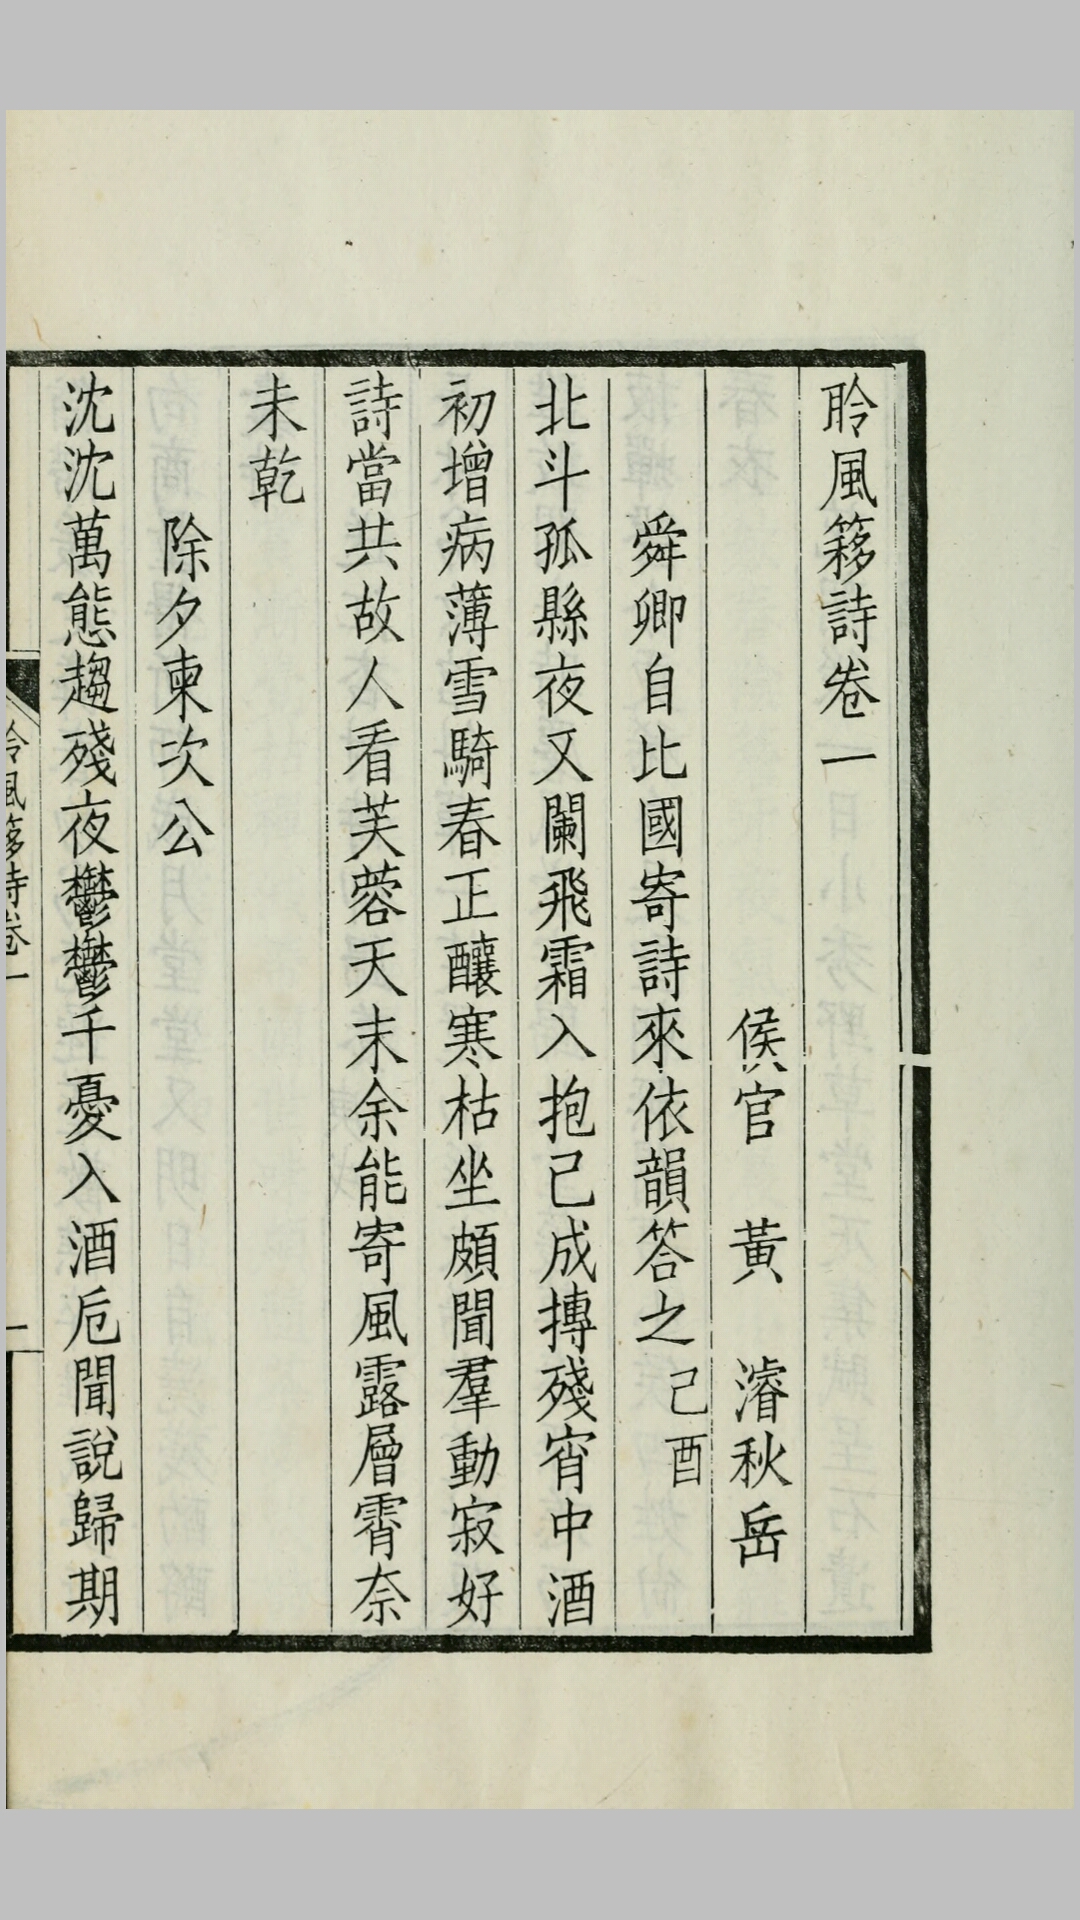 聆風簃詩卷一
侯官　黃　濬秋岳
舜卿自比國寄詩來依韻答之己酉
北斗孤縣夜又闌飛霜入抱已成摶殘宵中酒
初增病薄雪騎春正釀寒枯坐頗聞羣動寂好
詩當共故人看芙蓉天末余能寄風露層霄奈
未乾
除夕柬次公
沈沈萬態趨殘夜鬱鬱千憂入酒卮聞說歸期
聆風簃詩卷一
一